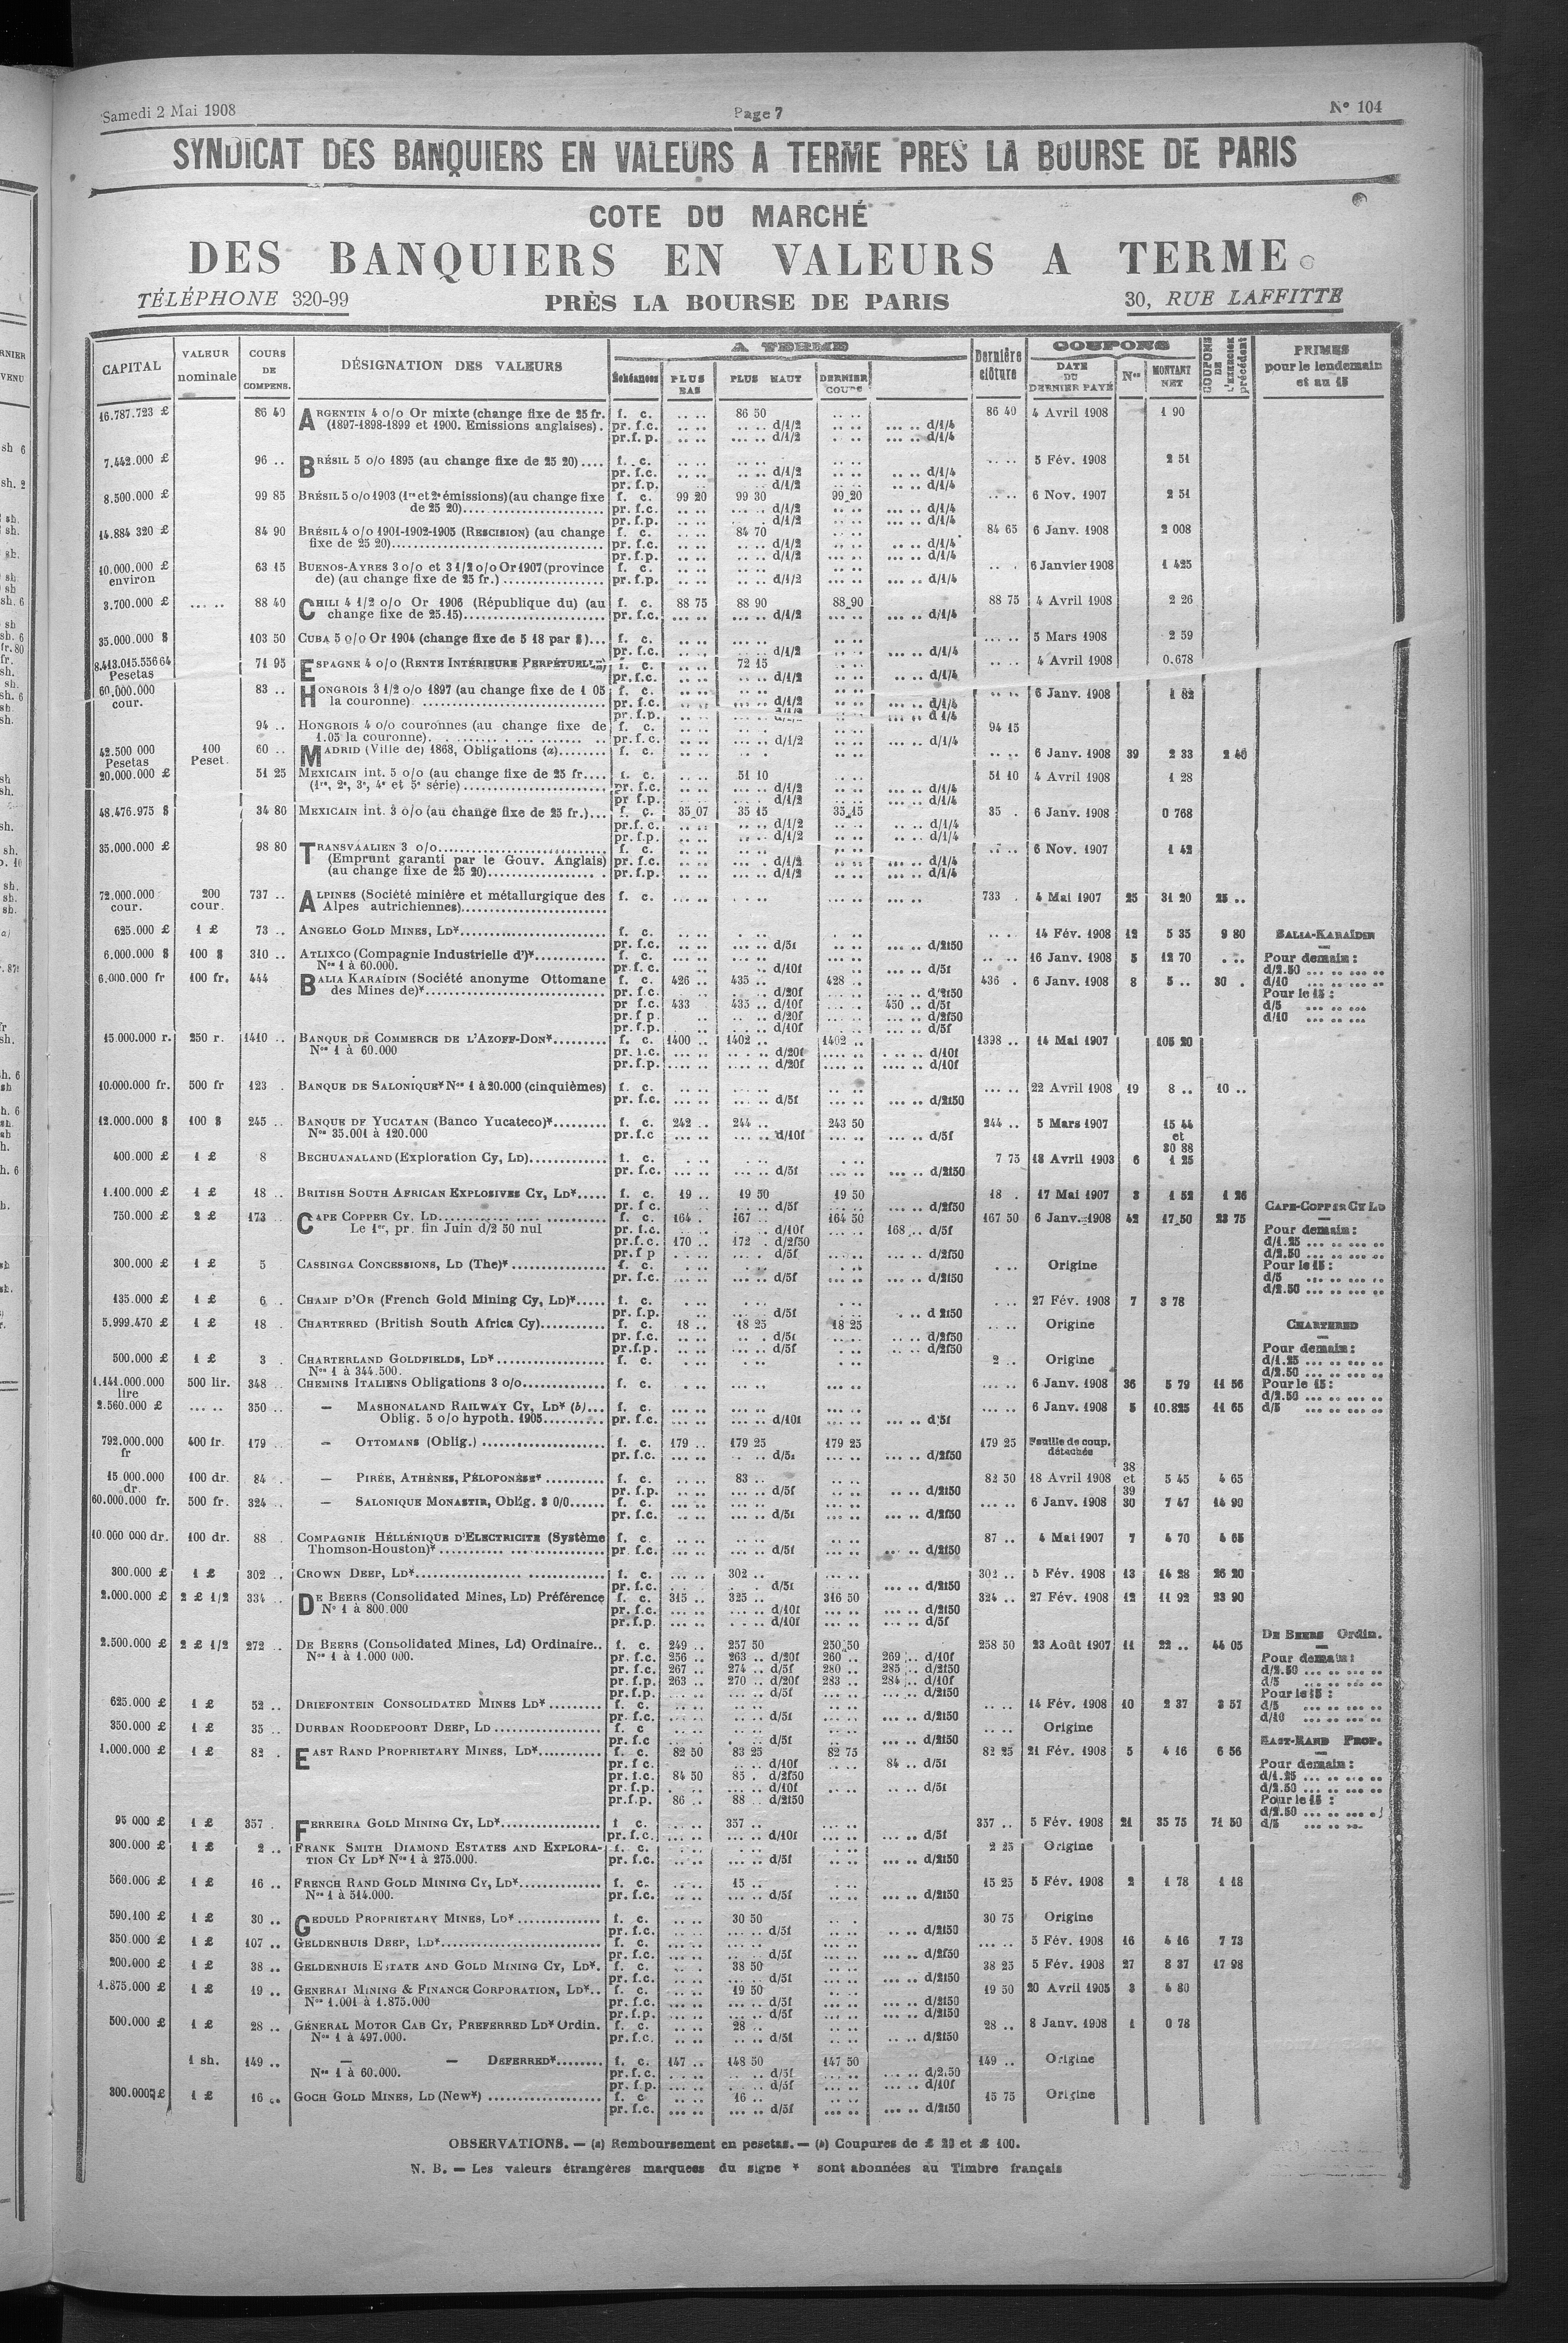 Samedi 2 Mai 1908 Page 7 N° 104
SYNDICAT DES BANQUIERS EN VALEURS A TERME PRES LA BOURSE DE PARIS
COTE DU MARCHÉ
DES BANQUIERS EN VALEURS A TERME
TÉLÉPHONE 320-99 PRÈS LA BOURSE DE PARIS 30, RUE LAFFITTE
CAPITAL VALEUR nominale COURS DE COMPENS. DÉSIGNATION DES VALEURS A TERME Échéances PLUS BAS PLUS HAUT DERNIER COURS Dernière clôture COUPONS DATE DU DERNIER PAYÉ Nos MONTANT NET COUPONS DE L'EXERCICE précédent PRIMES pour le lendemain et au 15
16.787.723 £ 86 40 ARGENTIN 4 o/o Or mixte (change fixe de 25 fr. f. c. .. .. 86 50 .. .. 86 40 4 Avril 1908 1 90
(1897-1898-1899 et 1900. Emissions anglaises). pr. f.c. .. .. .. .. d/1/2 .. .. ... .. d/1/4
pr.f.p. .. .. ... .. d/1/2 .. .. ... .. d/1/4
7.442.000 £ 96 .. BRÉSIL 5 o/o 1895 (au change fixe de 25 20).... f. c. .. .. .. .. .. .. 5 Fév. 1908 2 51
pr. f.c. .. .. ... .. d/1/2 .. .. .. .. d/1/4
pr. f.p. .. .. d/1/2 .. .. .. .. d/1/4
8.500.000 £ 99 85 BRÉSIL 5 o/o 1903 (1re et 2e émissions) (au change fixe f. c. 99 20 99 30 99 20 .. .. 6 Nov. 1907 2 51
de 25 20).... pr. f.c. .. .. .. .. d/1/2 .. .. .. .. d/1/4
pr. f.p. .. .. .. .. d/1/2 .. .. .. .. d/1/4
14.884 320 £ 84 90 BRÉSIL 4 o/o 1901-1902-1905 (RESCISION) (au change f. c. .. .. 84 70 .. .. 84 65 6 Janv. 1908 2 008
fixe de 25 20).... pr. f.c. .. .. .. .. d/1/2 .. .. .. .. d/1/4
pr. f.p. .. .. .. .. d/1/2 .. .. .. .. d/1/4
10.000.000 £ 63 15 BUENOS-AYRES 3 o/o et 3 1/2 o/o Or 1907 (province f. c. .. .. .. .. .. .. 6 Janvier 1908 1 425
environ de) (au change fixe de 25 fr.) .... pr. f.p. .. .. .. .. d/1/2 .. .. ... .. d/1/4
3.700.000 £ ... .. 88 40 CHILI 4 1/2 o/o Or 1906 (République du) (au f. c. 88 75 88 90 88 90 88 75 4 Avril 1908 2 26
change fixe de 25.15).... pr. f.c. ... .. ... .. d/1/2 ... .. ... .. d/1/4
35.000.000 $ 103 50 CUBA 5 o/o Or 1904 (change fixe de 5 18 par $)... f. c. .. .. .. .. .. .. ... .. 5 Mars 1908 2 59
pr. f.c. .. .. d/1/2 .. .. ... .. d/1/4
8.413.015.556 64 71 95 ESPAGNE 4 o/o (RENTE INTÉRIEURE PERPÉTUELLE) f. c. .. .. 72 15 .. .. 4 Avril 1908 0.678
Pesetas pr. f.c. .. .. .. .. d/1/2 .. .. ... .. d/1/4
60.000.000 83 .. HONGROIS 3 1/2 o/o 1897 (au change fixe de 1 05 f. c. .. .. .. .. .. .. 6 Janv. 1908 1 82
cour. la couronne) .... pr. f.c. .. .. ... .. d/1/2 .. .. ... .. d/1/4
pr. f.p. .. .. ... .. d 1/4
94 .. HONGROIS 4 o/o couronnes (au change fixe de f. c. .. .. .. .. .. .. 94 15
1.05 la couronne). pr. f.c. .. .. ... .. d/1/2 .. .. ... .. d/1/4
42.500 000 100 60 .. MADRID (Ville de) 1868, Obligations (a)........ f. c. .. .. .. .. .. .. 6 Janv. 1908 39 2 33 2 40
Pesetas Peset.
20.000.000 £ 51 25 MEXICAIN int. 5 o/o (au change fixe de 25 fr.... f. c. .. .. 51 10 .. .. 51 10 4 Avril 1908 1 28
(1re, 2e, 3e, 4e et 5e série).... pr. f.c. .. .. .. .. d/1/2 .. .. .. .. d/1/4
pr f.p. .. .. .. .. d/1/2 .. .. .. .. d/1/4
48.476.975 $ 34 80 MEXICAIN int. 3 o/o (au change fixe de 25 fr.)... f. c. 35 07 35 15 35 15 35 . 6 Janv. 1908 0 768
pr. f. c. .. .. .. .. d/1/2 .. .. .. .. d/1/4
pr. f.p. .. .. .. .. d/1/2 .. .. .. .. d/1/4
35.000.000 £ 98 80 TRANSVAALIEN 3 o/o.... f. c. .. .. .. .. .. .. 6 Nov. 1907 1 42
(Emprunt garanti par le Gouv. Anglais) pr. f.c. .. .. ... . d/1/2 .. .. ... .. d/1/4
(au change fixe de 25 20).... pr. f.p. .. .. ... .. d/1/2 .. .. ... .. d/1/4
72.000.000 200 737 .. ALPINES (Société minière et métallurgique des f. c. ... .. ... .. ... .. 733 . 4 Mai 1907 25 31 20 25 ..
cour. cour. Alpes autrichiennes)....
625.000 £ 1 £ 73 .. ANGELO GOLD MINES, LD*.... f. c. .. .. .. .. .. .. 14 Fév. 1908 12 5 35 9 80 BALIA-KARAÏDIN
pr. f.c. ... .. ... .. d/5f .. .. ... .. d/2f50
6.000.000 $ 100 $ 310 .. ATLIXCO (Compagnie Industrielle d')*.... f. c. .. .. .. .. .. .. 16 Janv. 1908 5 12 70 . .. Pour demain :
Nos 1 à 60.000. pr. f. c. ... .. ... .. d/10f .. .. ... .. d/5f d/2.50 ... .. ... ..
6.000.000 fr 100 fr. 444 BALIA KARAÏDIN (Société anonyme Ottomane f. c. 426 .. 435 .. 428 .. 436 . 6 Janv. 1908 8 5 .. 30 . d/10 ... .. ... ..
des Mines de)*.... pr f.c. ... .. d/20f ... .. d/2f50 Pour le 15 :
pr f.c. 433 435 .. d/10f ... .. 450 .. d/5f d/5 ... .. ...
pr. f p. .. ... .. d/20f ... .. d/2f50 d/10 ... .. ...
pr. f.p. ... .. d/10f ... .. d/5f
15.000.000 r. 250 r. 1410 .. BANQUE DE COMMERCE DE L'AZOFF-DON*.... f. c. 1400 .. 1402 .. 1402 .. 1398 .. 14 Mai 1907 105 20
Nos 1 à 60.000 pr. f.c. .... .. .... .. d/20f .... .. .... .. d/10f
pr. f.p. .... .. .... .. d/20f .... .. .... .. d/10f
10.000.000 fr. 500 fr 123 . BANQUE DE SALONIQUE* Nos 1 à 20.000 (cinquièmes) f. c. ... .. ... .. ... .. ... .. 22 Avril 1908 19 8 .. 10 ..
pr. f.c. ... .. ... .. d/5f ... .. ... .. d/2f50
12.000.000 $ 100 $ 245 .. BANQUE DE YUCATAN (Banco Yucateco)*.... f. c. 242 .. 244 .. 243 50 244 .. 5 Mars 1907 15 44
Nos 35.001 à 120.000 pr. f.c ... .. ... .. d/10f ... .. ... .. d/5f et
30 88
400.000 £ 1 £ 8 BECHUANALAND (Exploration Cy, LD).... f. c. . .. . .. . .. 7 75 18 Avril 1903 6 1 25
pr. f.c. ... .. ... .. d/5f ... .. ... .. d/2f50
1.100.000 £ 1 £ 18 .. BRITISH SOUTH AFRICAN EXPLOSIVES CY, LD*..... f. c. 19 .. 19 50 19 50 18 . 17 Mai 1907 3 1 52 1 26
pr f c. .. .. .. .. d/5f .. .. .. .. d/2f50 CAPE-COPPER CY LD
750.000 £ 2 £ 173 .. CAPE COPPER CY, LD.... f. c. 164 . 167 .. 164 50 167 50 6 Janv. 1908 42 17.50 23 75
Le 1er, pr. fin Juin d/2 50 nul pr. f.c. ... .. ... .. d/10f ... .. 168 .. d/5f Pour demain :
pr. f. c. 170 .. 172 . d/2f50 d/1.25 ... .. ... ..
pr. f p ... .. d/5f ... .. d/2f50 d/2.50 ... .. ... ..
300.000 £ 1 £ 5 CASSINGA CONCESSIONS, LD (The)*.... f. c. . .. . .. . .. . .. Origine Pour le 15 :
pr. f.c. ... .. ... .. d/5f ... .. ... .. d/2f50 d/5 ... .. ... ..
d/2.50 ... .. ... ..
135.000 £ 1 £ 6 . CHAMP D'OR (French Gold Mining Cy, LD)*..... f. c. . .. . .. . .. . .. 27 Fév. 1908 7 3 78
pr. f.p. ... .. ... .. d/5f ... .. ... .. d 2f50
5.999.470 £ 1 £ 18 . CHARTERED (British South Africa Cy).... f. c. 18 .. 18 25 18 25 .. .. Origine CHARTERED
pr. f.c. .. .. .. .. d/5f .. .. .. .. d/2f50
pr. f.p. .. .. .. .. d/5f .. .. .. .. d/2f50 Pour demain :
500.000 £ 1 £ 3 . CHARTERLAND GOLDFIELDS, LD*.... f. c. . .. . .. . .. 2 .. Origine d/1.25 ... .. ... ..
Nos 1 à 344.500. d/2.50 ... .. ... ..
1.141.000.000 500 lir. 348 .. CHEMINS ITALIENS Obligations 3 o/o.... f. c. ... .. ... .. ... .. ... .. 6 Janv. 1908 36 5 79 11 56 Pour le 15 :
lire d/2.50 ... .. ... ..
2.560.000 £ ... .. 350 .. — MASHONALAND RAILWAY CY, LD* (b)... f. c. ... .. ... .. ... .. 6 Janv. 1908 5 10.825 11 65 d/5 ... .. ... ..
Oblig. 5 o/o hypoth. 1905.... pr. f.c. ... .. ... .. d/10f ... .. ... .. d/5f
792.000.000 400 fr. 179 — OTTOMANS (Oblig.) .... f. c. 179 .. 179 25 179 25 179 25 Feuille de coup.
fr pr. f.c. ... .. d/5f ... .. d/2f50 détachée
38
15 000.000 100 dr. 84 . — PIRÉE, ATHÈNES, PÉLOPONÈSE* .... f. c .. .. 83 .. .. .. 82 50 18 Avril 1908 et 5 45 4 65
dr. pr. f.p. .. .. ... .. d/5f .. .. .. .. d/2f50 39
60.000.000 fr. 500 fr. 324 .. — SALONIQUE MONASTIR, Oblig. 3 0/0...... f. c. ... .. ... .. ... .. ... .. 6 Janv. 1908 30 7 47 14 90
pr. f.c. ... .. ... .. d/5f ... .. ... .. d/2f50
10.000 000 dr. 100 dr. 88 . COMPAGNIE HÉLLÉNIQUE D'ELECTRICITE (Système f. c. .. .. .. .. .. .. 87 .. 4 Mai 1907 7 4 70 4 65
Thomson-Houston)*.... pr. f.c. ... .. ... .. d/5f ... .. ... .. d/2f50
300.000 £ 1 £ 302 .. CROWN DEEP, LD*.... f. c. ... .. 302 .. ... .. 302 .. 5 Fév. 1908 13 14 28 26 20
pr. f.c. ... .. .. d/5f ... .. ... .. d/2f50
2.000.000 £ 2 £ 1/2 334 .. DE BEERS (Consolidated Mines, LD) Préférence f. c. 315 .. 325 .. 316 50 324 .. 27 Fév. 1908 12 11 92 23 90
N° 1 à 800.000 pr. f.c. ... .. ... .. d/10f ... .. ... .. d/2f50
pr. f.p. ... .. ... .. d/10f ... .. ... .. d/5f
2.500.000 £ 2 £ 1/2 272 .. DE BEERS (Consolidated Mines, Ld) Ordinaire.. f. c. 249 .. 257 50 250 50 258 50 23 Août 1907 11 22 .. 44 05 DE BEERS Ordin.
Nos 1 à 1.000 000. pr. f.c. 256 .. 263 .. d/20f 260 .. 269 .. d/10f Pour demain :
pr. f.c. 267 .. 274 .. d/5f 280 .. 285 .. d/2f50 d/2.50 ... .. ... ..
pr. f.p. 263 .. 270 .. d/20f 283 .. 284 .. d/10f d/5 ... .. ... ..
pr. f.p. ... .. ... .. d/5f ... .. d/2f50 Pour le 15 :
625.000 £ 1 £ 52 .. DRIEFONTEIN CONSOLIDATED MINES LD* ......... f. c. .. .. .. .. .. .. .. .. 14 Fév. 1908 10 2 37 3 57 d/5 ... .. ... ..
pr. f.c. ... .. ... .. d/5f ... .. ... .. d/2f50 d/10 ... .. ... ..
350.000 £ 1 £ 35 .. DURBAN ROODEPOORT DEEP, LD .... f. c .. .. .. .. .. .. .. .. Origine
pr. f.c ... .. ... .. d/5f ... .. ... .. d/2f50 EAST-RAND PROP.
1.000.000 £ 1 £ 82 . EAST RAND PROPRIETARY MINES, LD*.... f. c. 82 50 83 25 82 75 82 25 21 Fév. 1908 5 4 16 6 56
pr. f c. .. .. .. .. d/10f .. .. 84 .. d/5f Pour demain :
pr. f.c. 84 50 85 . d/2f50 d/1.25 ... .. ... ..
pr. f.p. ... .. ... .. d/10f .. .. .. .. d/5f d/2.50 ... .. ... ..
pr. f.p. 86 .. 88 .. d/2f50 Pour le 15 :
d/2.50 ... .. ... ..
95 000 £ 1 £ 357 . FERREIRA GOLD MINING CY, LD*.... f c. .. .. 357 .. ... .. 357 .. 5 Fév. 1908 21 35 75 71 50 d/5 ... .. ...
pr. f.c. ... .. ... .. d/10f ... .. ... .. d/5f
300.000 £ 1 £ 2 .. FRANK SMITH DIAMOND ESTATES AND EXPLORA- f. c. . .. . .. . .. 2 25 Origine
TION CY LD* Nos 1 à 275.000. pr. f.c. ... .. ... .. d/5f ... .. ... .. d/2f50
560.000 £ 1 £ 16 .. FRENCH RAND GOLD MINING CY, LD*.... f. c. .. .. 15 .. .. .. 15 25 5 Fév. 1908 2 1 78 1 18
Nos 1 à 514.000. pr. f.c. ... .. ... .. d/5f ... .. ... .. d/2f50
590.100 £ 1 £ 30 .. GEDULD PROPRIETARY MINES, LD*.... f. c. .. .. 30 50 .. . 30 75 Origine
pr. f.c. ... .. ... .. d/5f ... .. .. .. d/2f50
350.000 £ 1 £ 107 .. GELDENHUIS DEEP, LD*.... f. c. ... .. ... .. ... .. ... .. 5 Fév. 1908 16 4 16 7 73
pr. f.c. ... .. ... .. d/5f ... .. ... .. d/2f50
200.000 £ 1 £ 38 .. GELDENHUIS ESTATE AND GOLD MINING CY, LD*. f. c. .. . 38 50 .. .. 38 25 5 Fév. 1908 27 8 37 17 98
pr. f.c. ... .. ... .. d/5f ... .. ... .. d/2f50
1.875.000 £ 1 £ 19 .. GENERAL MINING & FINANCE CORPORATION, LD*.. f. c. .. .. 19 50 .. .. 19 50 20 Avril 1905 3 4 80
Nos 1.001 à 1.875.000 pr. f.c. ... .. ... .. d/5f ... .. ... .. d/2f50
pr. f.p. ... .. ... .. d/5f ... .. ... .. d/2f50
500.000 £ 1 £ 28 .. GÉNERAL MOTOR CAB CY, PREFERRED LD* Ordin. f. c. .. .. 28 .. .. .. 28 .. 8 Janv. 1908 1 0 78
Nos 1 à 497.000. pr. f.c. .. .. .. .. d/5f .. .. .. .. d/2f50
1 sh. 149 .. — — DEFERRED*........ f. c. 147 .. 148 50 147 50 149 .. Origine
Nos 1 à 60.000. pr. f. c. ... .. ... .. d/5f ... .. ... .. d/2.50
pr. f.p. ... .. ... .. d/5f ... .. ... .. d/10f
300.000 £ 1 £ 16 .. GOCH GOLD MINES, LD (New*) .... f. c .. .. 16 .. .. .. 15 75 Origine
pr. f.c. ... .. ... .. d/5f ... .. ... .. d/2f50
OBSERVATIONS. — (a) Remboursement en pesetas. — (b) Coupures de £ 20 et £ 100.
N. B. — Les valeurs étrangères marquees du signe * sont abonnées au Timbre français